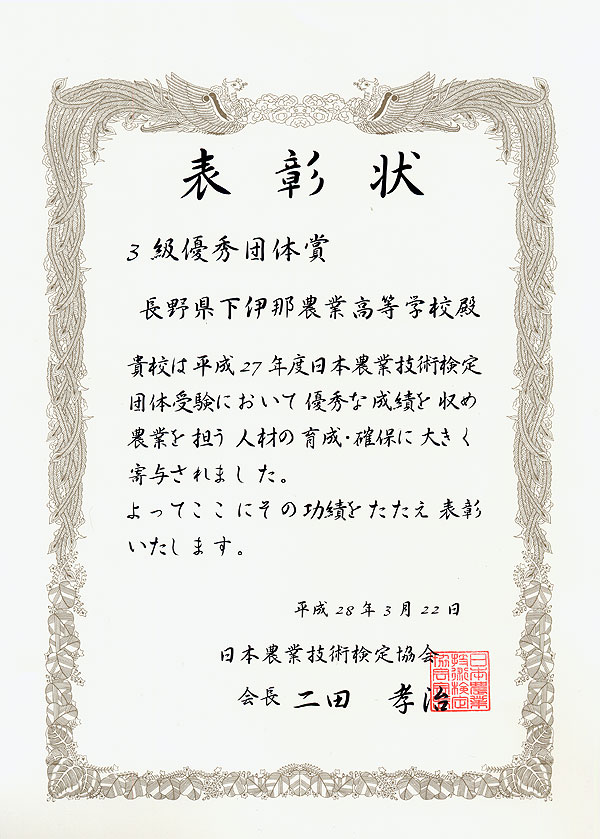 表彰状
3級優秀団体賞
長野県下伊那農業高等学校殿
貴校は平成27年度日本農業技術検定
団体受験において優秀な成績を収め
農業を担う人材の育成・確保に大きく
寄与されました。
よってここにその功績をたたえ表彰
いたします。
平成28年3月22日
日本農業技術検定協会
会長 二田 孝治
日本農業
技術検定
協会